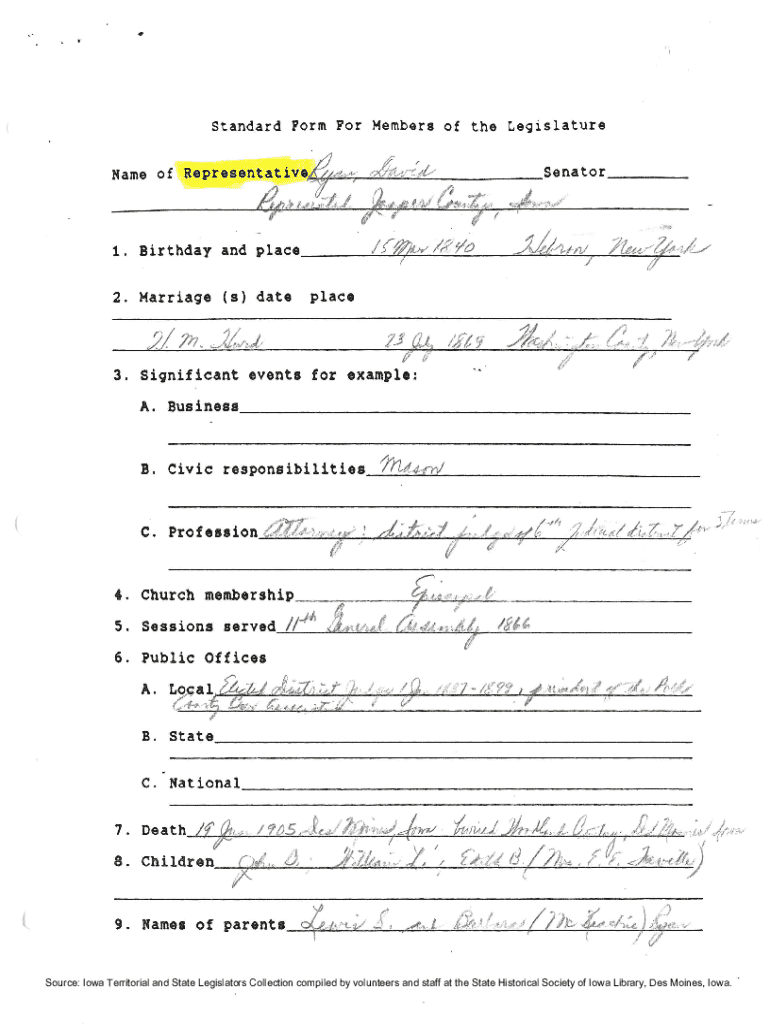 Standard Form For Members of the Legislature
Name of Representative Ryan, David Senator
Represented Jasper County, Iowa
1. Birthday and place 15 Mar 1840 Hebron, New York
2. Marriage (s) date place
H. M. Hurd 23 July 1869 Washington County, New York
3. Significant events for example:
A. Business
B. Civic responsibilities Mason
C. Profession Attorney; district judge of 6th judicial district for 3 terms
4. Church membership Episcopal
5. Sessions served 11th General Assembly 1866
6. Public Offices
A. Local Elected District Judge 1 Jan 1887-1899, president of the Polk
County Bar Association
B. State
C. National
7. Death 19 1905 Des Moines, Iowa buried Woodland Des Moines Iowa
8. Children John ; William L.; Edith B. (Mrs. E. E. )
9. Names of parents Lewis S. and Barbara Ryan
Source: Iowa Territorial and State Legislators Collection compiled by volunteers and staff at the State Historical Society of Iowa Library, Des Moines, Iowa.